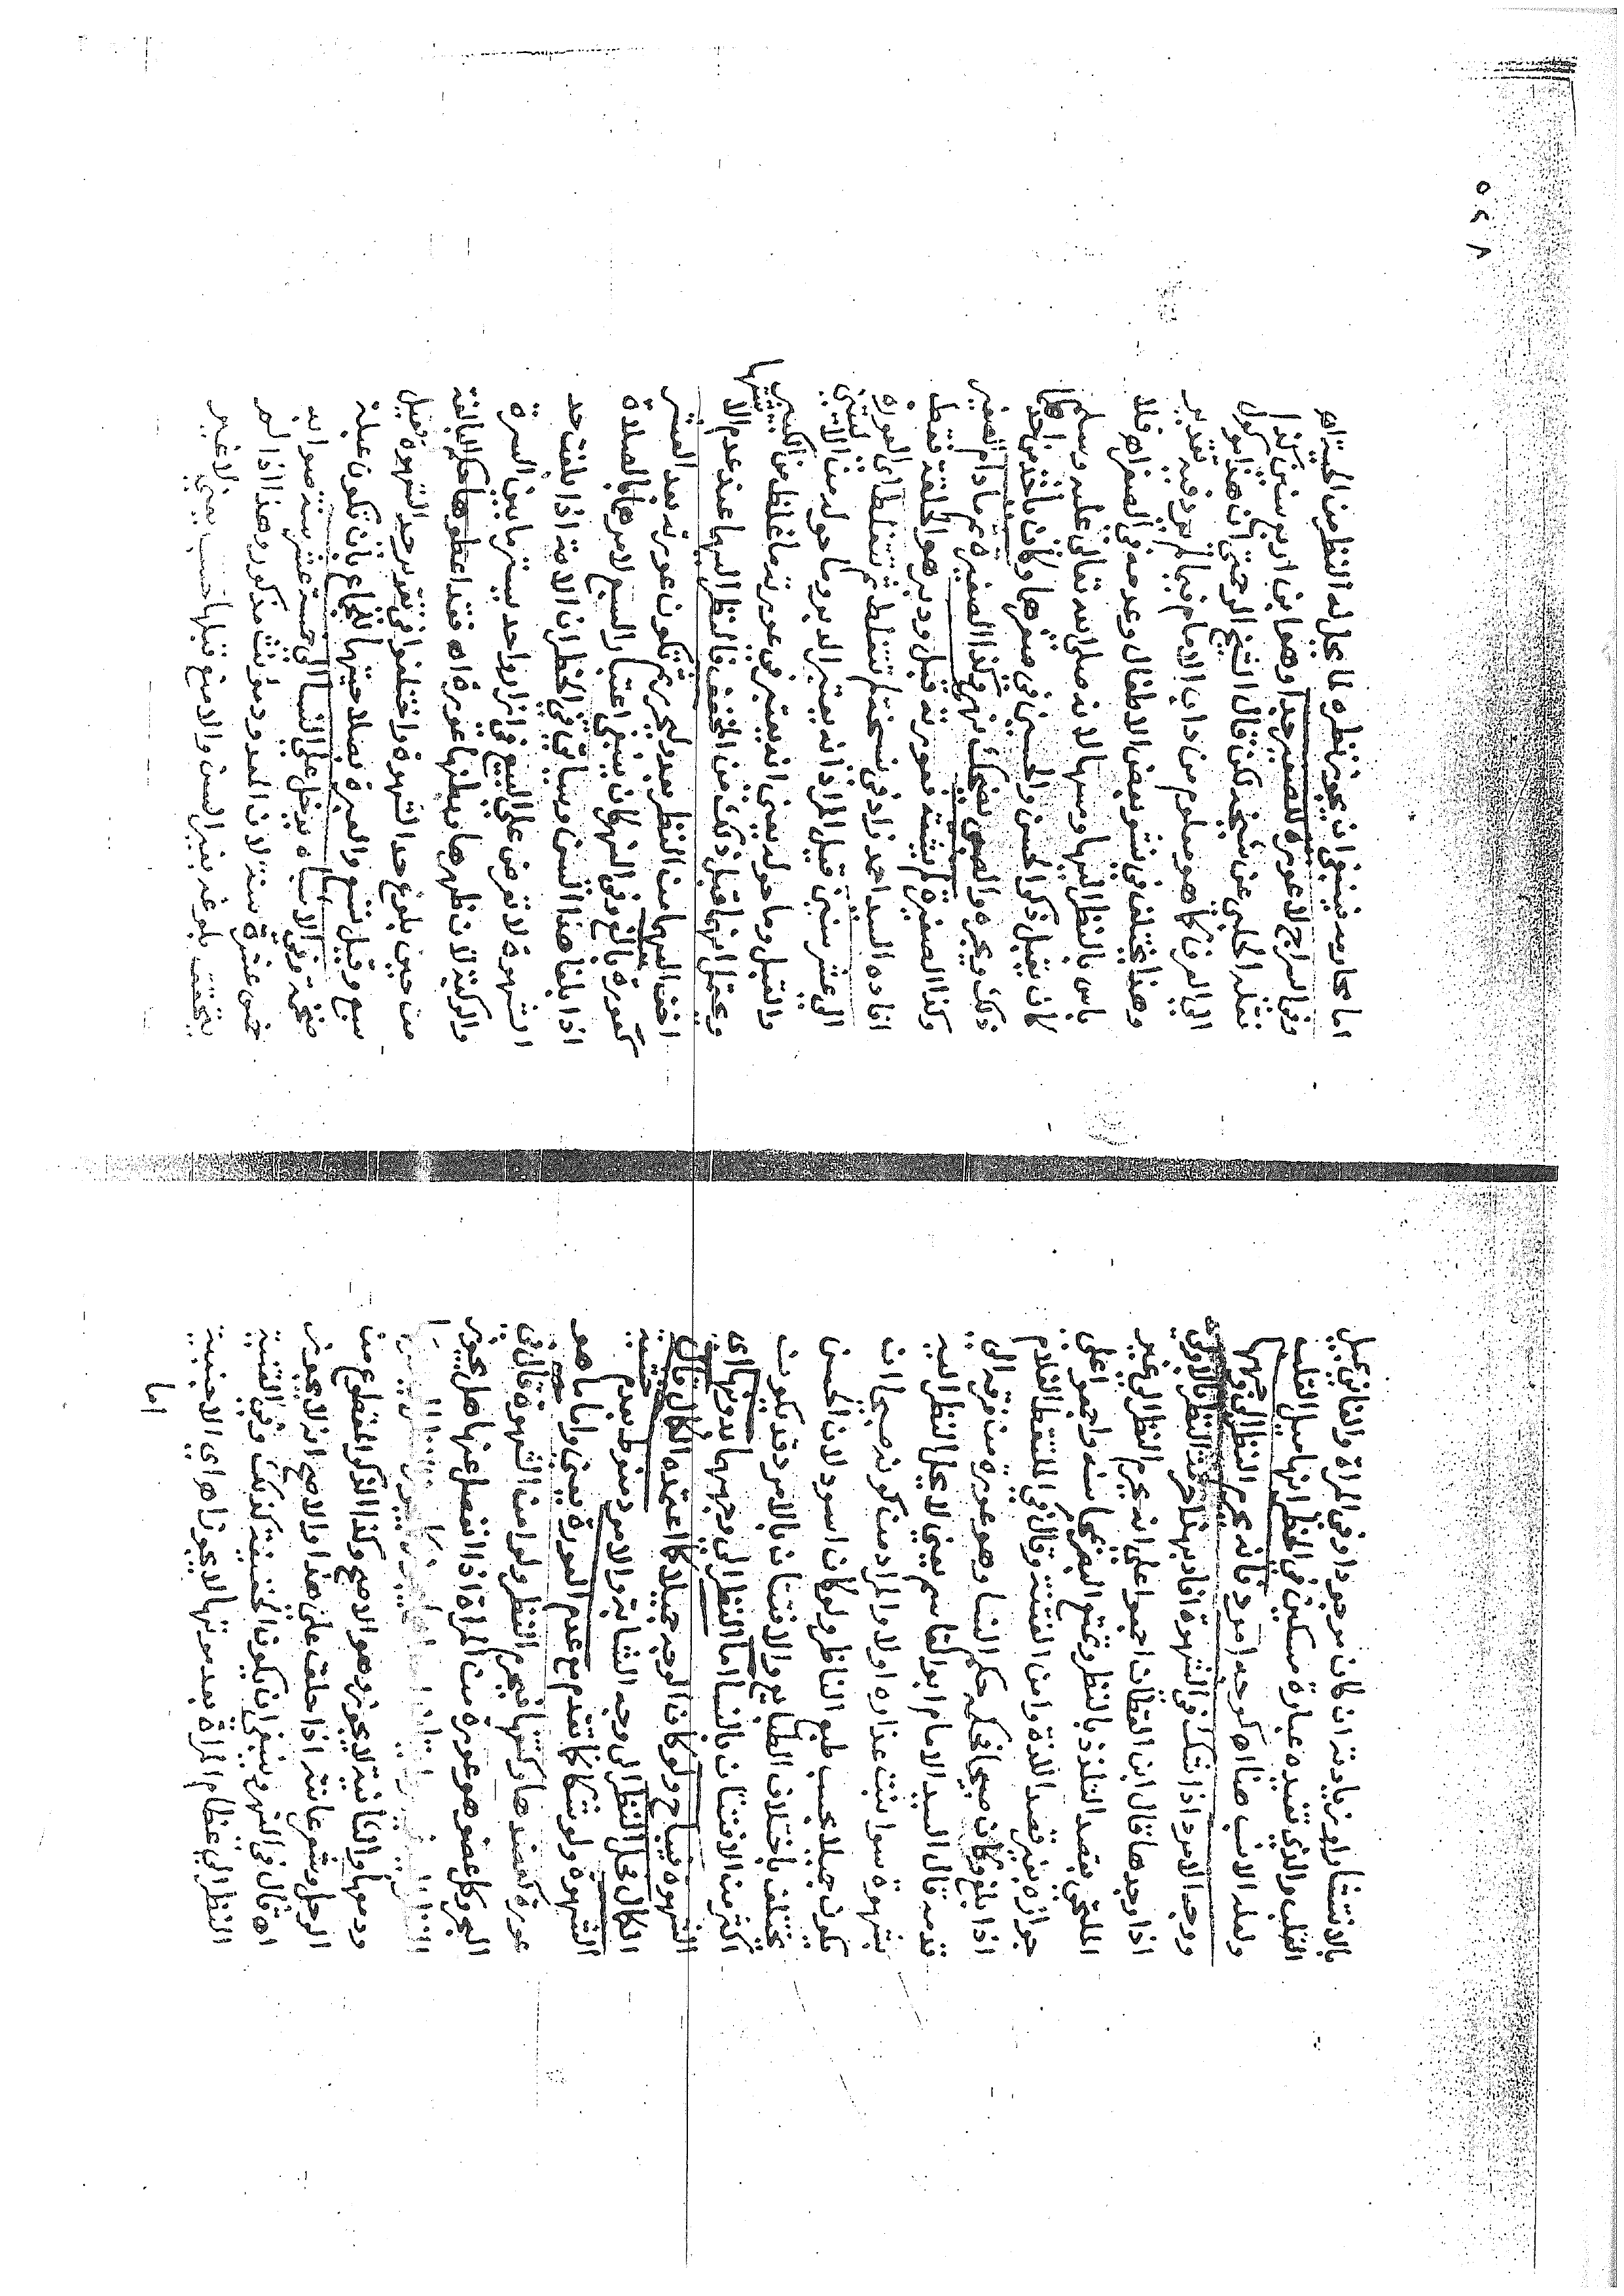 بالانتشار او بزيادته ان كان موجودا وفي المراة والفاني بميل
القلب والذي تفيده عبارة مسكين في الحظر انها ميل القلب
ولعله الانسب هنا اهـ كوجه امرد فانه يحرم النظر الى وجهها
ووجه الامرد اذا شك في الشهوة افاد بهذا حرمة النظر بالاولى
اذا وجدها قال ابن القطان اجمعوا على انه يحرم النظر الى غير
الملتحي بقصد التلذذ بالنظر وتمتع البصر بمحاسنه واجمعوا على
جوازه بغير قصد اللذة وامن الفتنة وقال في الملتقط الغلام
اذا بلغ وكان صبيحا فحكمه حكم النسا وهو عورة من قرنه الى
قدمه قال السيد الامام ابو القاسم يعني لا يحل النظر اليه
بشهوة سوا نبت عذاره اولا والمراد من كونه صبيحا ان
يكون جميلا بحسب طبع الناظر ولو كان اسود لان الحسن
يختلف باختلاف الطبايع والافتتان بالامرد قد يكون
اكثر من الافتتان بالنسا اما النظر الى وجهها بدونها اي
الشهوة فيباح ولو كان الوجه جميلا كما اعتمده الكمال قال
الكمال فحل النظر الى وجه الشابة والامرد منوط بعدم خشية
الشهوة ولو شكا كما تقدم مع عدم العورة يعني واما ما هو
عورة كفخذها وركبتها فيحرم النظر ولو امن الشهوة قال في
البحر وكل عضو هو عورة من المراة اذا انفصل عنها هل يجوز
ودمعها والثانية لا يجوز وهو الاصح وكذا الذكر المقطوع من
الرجل وشعر عانته اذا حلقت على هذا والاصح انه لا يجوز
اهـ قال في النهر وينبغي ان يكون الخنثى كذلك وفي القنية
النظر الى عظام المراة بعد موتها لا يجوز اهـ اي الاجنبية
اما
اما محارمه فينبغي ان يجوز نظره لما يحل له النظر من الحية اهـ
وفي السراج لا عورة للصغير جدا وهما ابن اربع سنين كذا
نقله الحلبي عن شيخه لكن قال الشيخ الرحمتي ان هذا يوكول
الى العرف كما هو معلوم من داب الامام فيما لم يرد فيه تقدير
وهذا يختلف في نشو بعض الاطفال وعدمه في الصغر اهـ فلا
باس بالنظر اليها ومسها لانه صلى الله تعالى عليه وسلم
كان يقبل ذكر الحسن والحسين في صغرهما وكان ياخذ من احدهما
ذلك ويجره والصبي يضحك نهر وكذا الصغيرة ثم ما دام لصغير
وكذا الصغيرة لم يشته فعورته قبل ودبر هو الحلقة فقط
افاده السيد احمد زاد في نسخة ثم تتغلظ ثم تتغلظ اي العورة
الى عشر سنين قيل المراد انه يعتبر الدبر وما حوله من الاليتين
والقبل وما حوله يعني انه يعتبر في عورته ما غلظ من الكبير
ويحتمل انها قبل ذلك من المخفف فالنظر اليها عند عدم الاشتها
اخف اليهما من النظر بعد وليحرر ثم تكون عورته بعد العشر
كعورة بالغ وفي النهر كان ينبغي اعتبار السبع لامرهما بالصلاة
اذا بلغا هذا السن وسياتي في الحظر ان الامة اذا بلغت حد
الشهوة لا تعرض على البيع في ازار واحد يستر ما بين السرة
والركبة لان ظهرها وبطنها عورة اهـ فقد اعطوها حكم البالغة
من حين بلوغ حد الشهوة واختلفوا في تقدير حد الشهوة فقيل
سبع وقيل تسع والعبرة بصلاحيتها للجماع بان تكون عبلة
ضخمة وفي الاشباه يدخل على النسا الى خمسة عشر سنة صوابه
خمس عشرة سنة لان المعدود مونث مذكور وهذا اذا لم
يتحقق بلوغه بغير السن والا منع قبلها حسب يعني لا غير